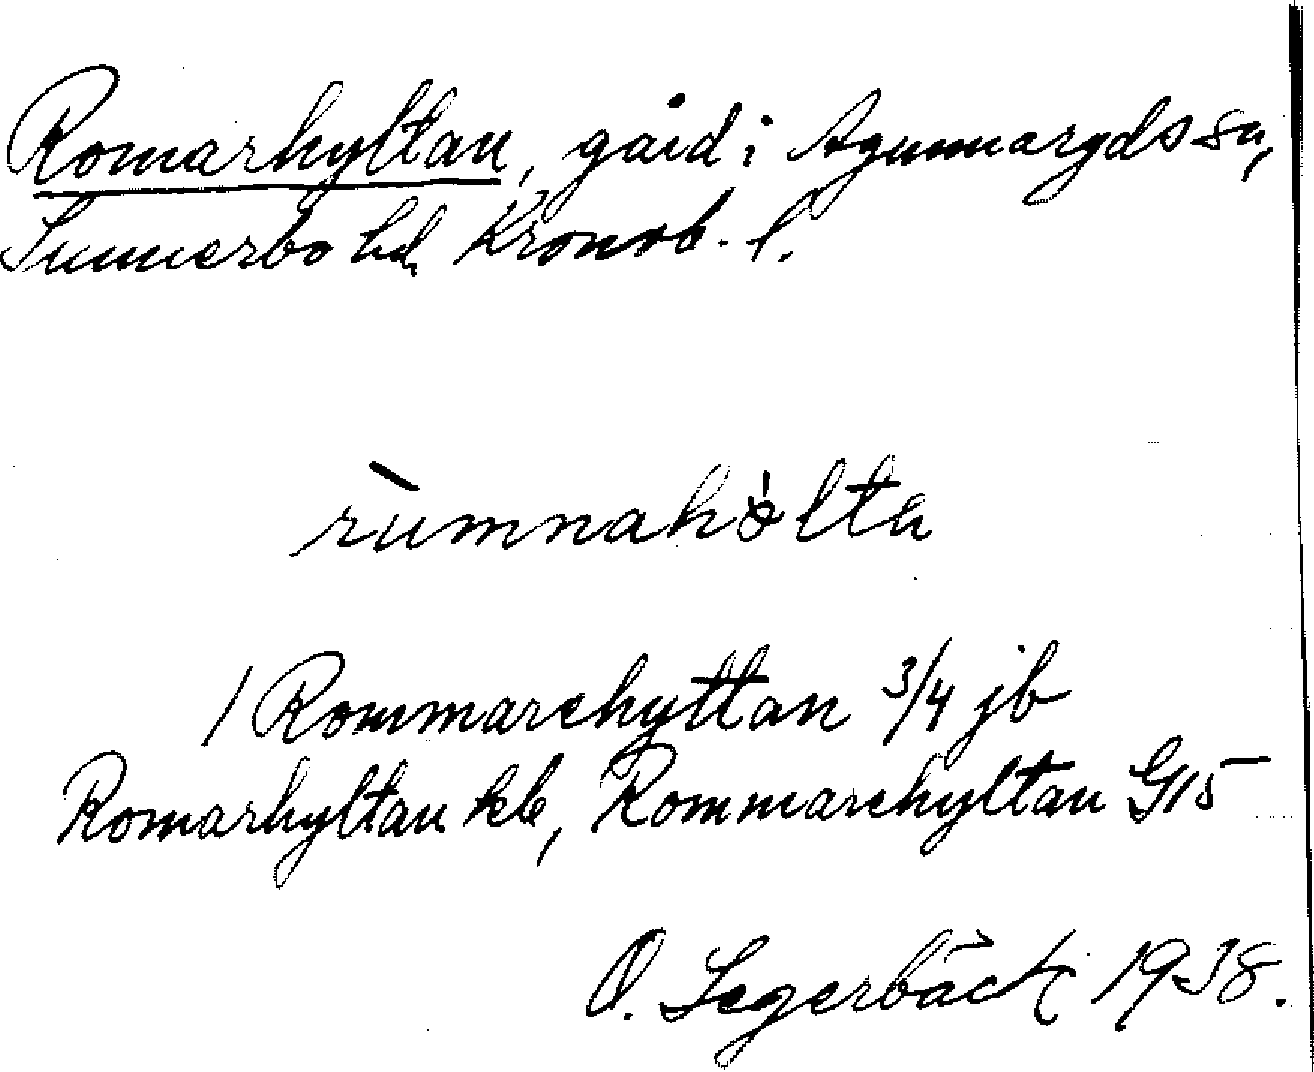 Romarhyltan, gård i Agunnaryds sn,
Sunnerbo hd, Kronob. l.
rùmnahø̀lta
1 Rommarehyltan 3/4 jb
Romarhyltan kb, Rommarehyltan G15
O. Segerbäck 1938.